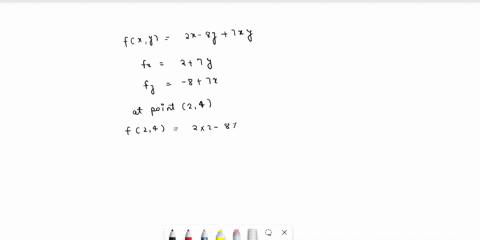 f(x,y) = 2x - 8y + 7xy
fx = 2 + 7y
fy = -8 + 7x
at point (2,4)
f(2,4) = 2×2 - 8